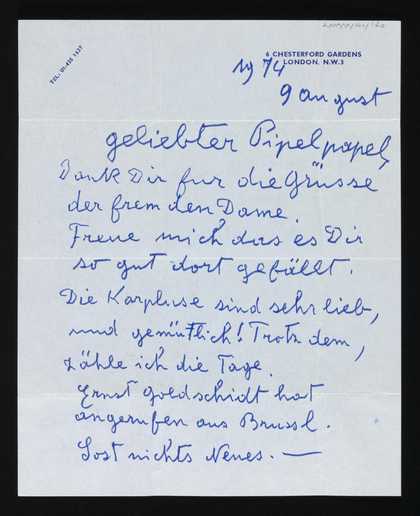 TEL: 01-435 1437
6 CHESTERFORD GARDENS
LONDON, N.W.3
1974
9 august
geliebter Pipelpapel,
Dank Dir fur die Grüsse
der fremden Dame.
Freue mich, das es Dir
so gut dort gefällt.
Die Karpluse sind sehr lieb,
und gemütlich! Trotz dem,
zähle ich die Tage.
Ernst goldschidt hat
angerufen aus Brussl.
Sost nichts Neues. —